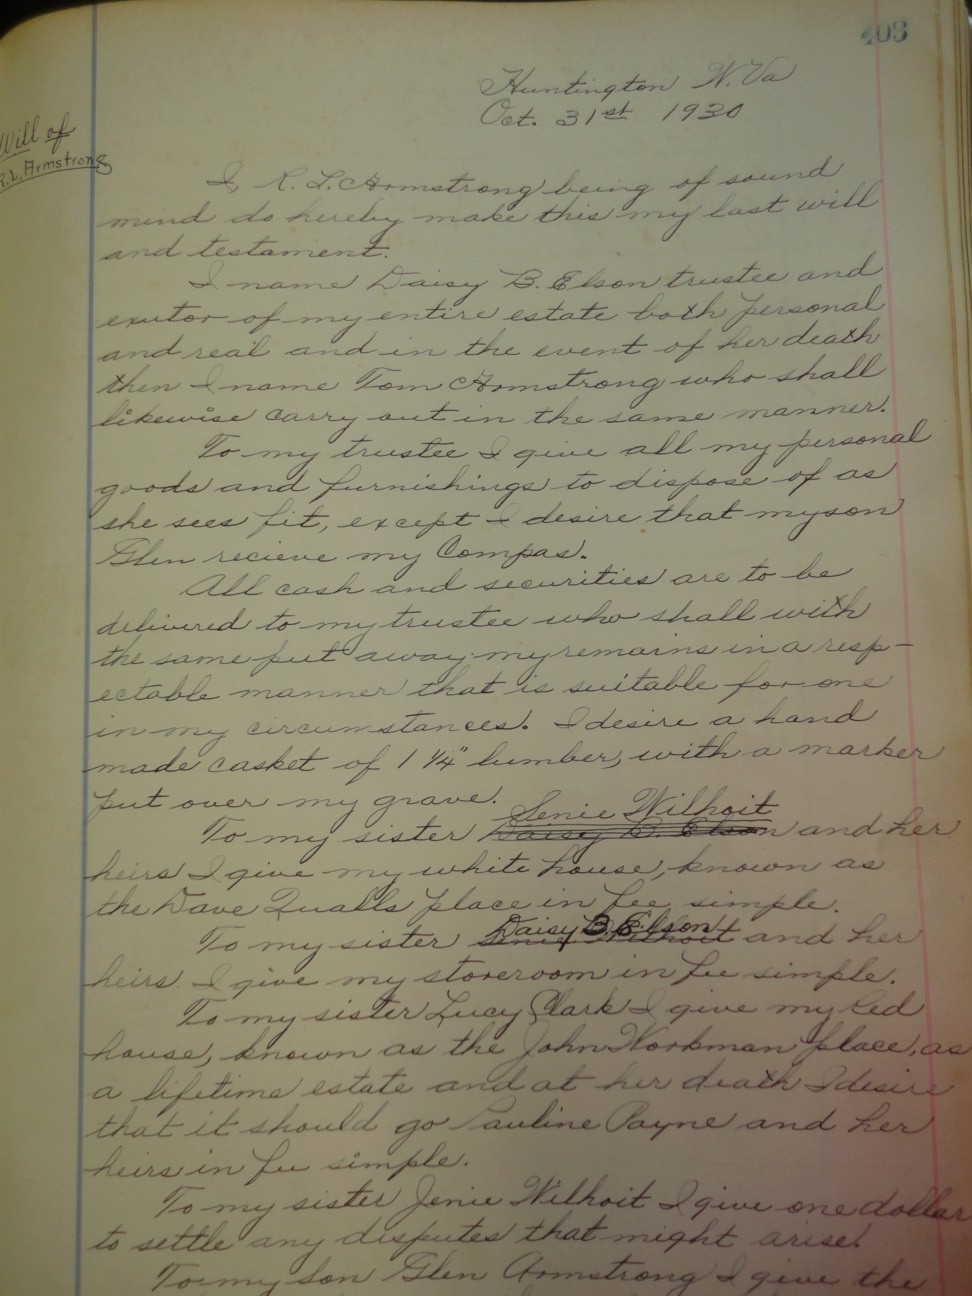 403
Huntington W. Va
Oct. 31st 1930
Will of
R.L. Armstrong
I, R. L. Armstrong being of sound
mind do hereby make this my last will
and testament.
I name Daisy B. Elson trustee and
exutor of my entire estate both personal
and real and in the event of her death
then I name Tom Armstrong who shall
likewise carry out in the same manner.
To my trustee I give all my personal
goods and furnishings to dispose of as
she sees fit, except I desire that my son
Glen recieve my Compas.
All cash and securities are to be
delivered to my trustee who shall with
the same put away my remains in a resp-
ectable manner that is suitable for one
in my circumstances. I desire a hand
made casket of 1 1/4" lumber, with a marker
put over my grave.
Senie Wilhoit
To my sister Daisy B. Elson and her
heirs I give my white house, known as
the Dave Qualls place in fee simple.
Daisy B. Elson
To my sister Senie Wilhoit and her
heirs I give my storeroom in fee simple.
To my sister Lucy Clark I give my Red
house, known as the John Workman place, as
a lifetime estate and at her death I desire
that it should go Pauline Payne and her
heirs in fee simple.
To my sister Jenie Wilhoit I give one dollar
to settle any disputes that might arise.
To my son Glen Armstrong I give the